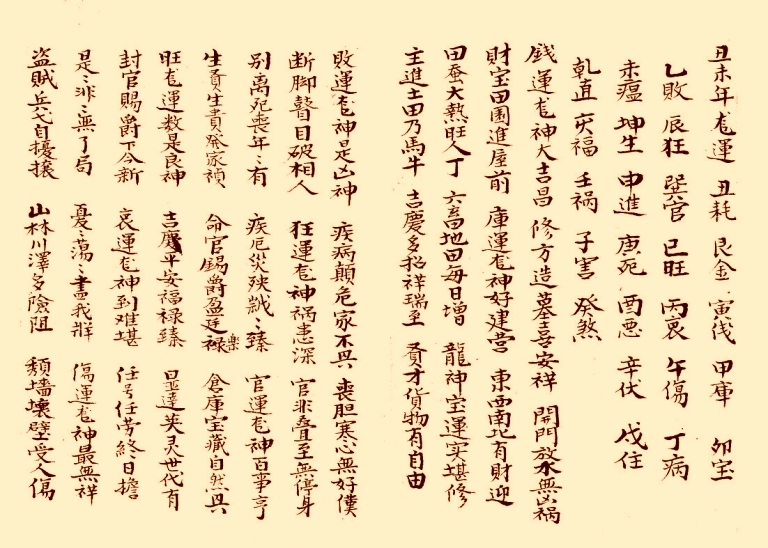 丑未年尨運 丑耗 艮金 寅伐 甲庫 卯宝
乙敗 辰狂 巽官 巳旺 丙哀 午傷 丁病
未瘟 坤生 申進 庚死 酉悪 辛伏 戌住
乹直 亥福 壬祸 子害 癸煞
錢運尨神大吉昌 修方造墓喜安祥 開門放水無凶祸
財宝田園進屋前 庫運尨神好建营 東西南北有財迎
田蚕大熟旺人丁 六畜地田每日增 龍神宝運实堪修
主進土田乃馬牛 吉慶多招祥瑞至 賚才貨物有自由
敗運尨神是凶神 疾病顛危家不興 喪胆寒心無好僕
断脚瞽目破相人 狂運尨神祸患深 官非叠至無停身
别离死喪年〻有 疾厄災殃戥〻臻 官運尨神百事亨
生賚生貴発家禎 命官錫爵盈廷禄 樂 倉庫宝藏自然興
旺尨運数是良神 吉慶平安福禄臻 昷達英灵世代有
封官賜爵下合新 哀運尨神到难堪 任号任劳終日擔
是〻非〻無了局 憂〻蕩〻書我牂 傷運尨神最無祥
盗賊兵弋自擾攘 山林川澤多隂阻 頽墻壊壁受人傷